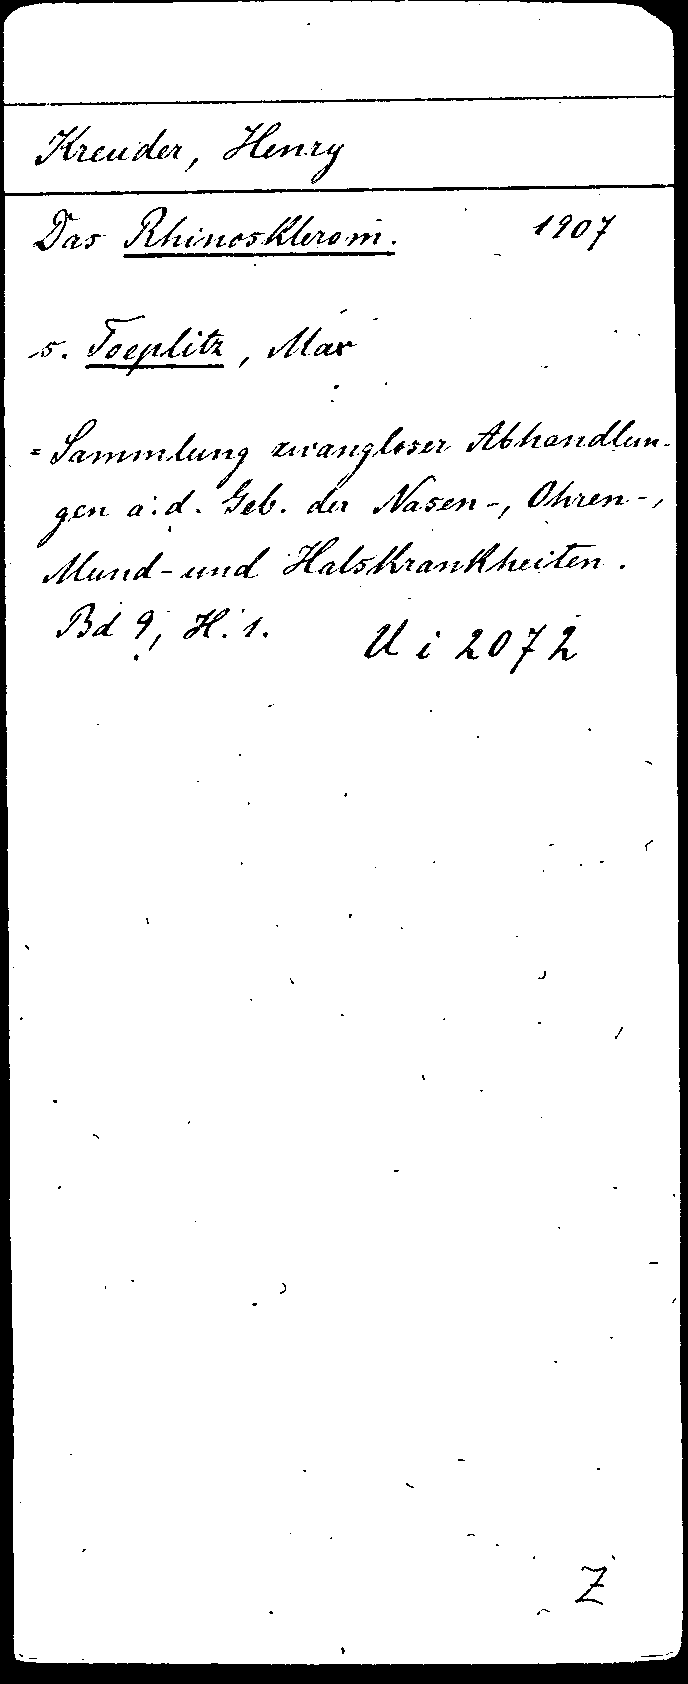 Kreuder, Henry
Das Rhinosklerom. 1907
s. Toeplitz, Max
= Sammlung zwangloser Abhandlun-
gen a. d. Geb. der Nasen-, Ohren-,
Mund- und Halskrankheiten.
Bd 9, H. 1. U i 2072
Z